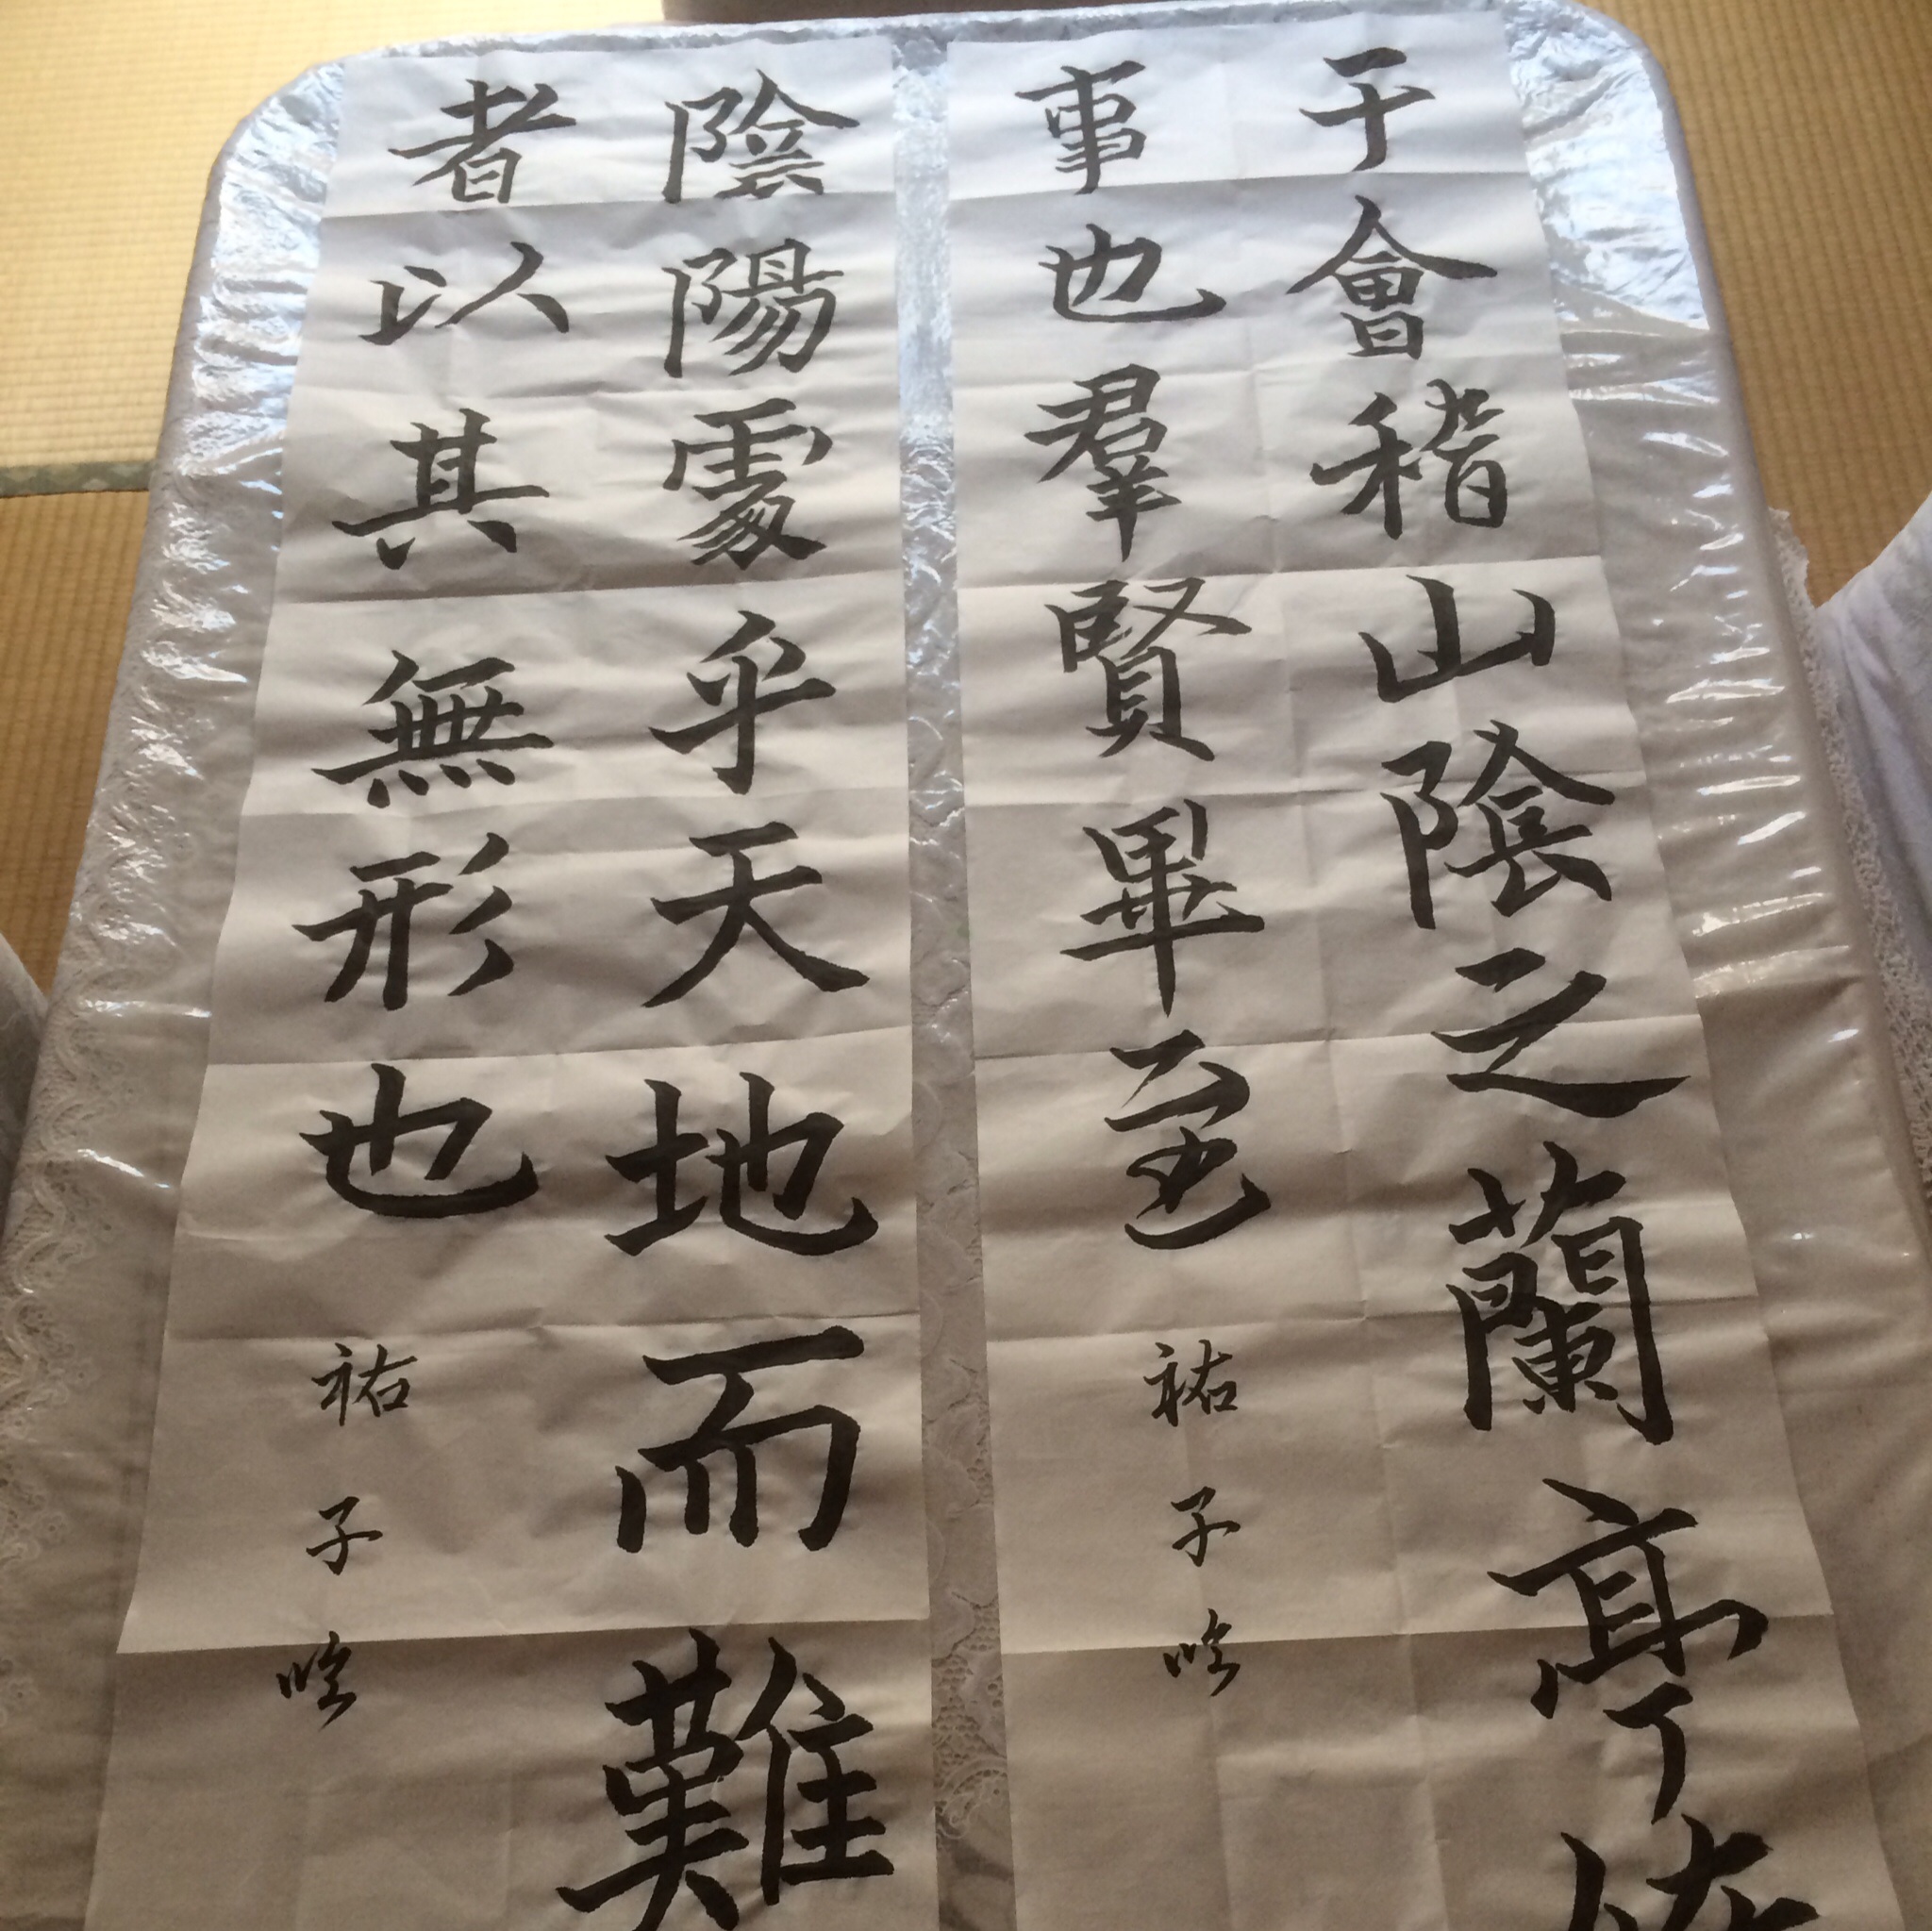 于會稽山陰之蘭亭脩
事也羣賢畢至
祐子吟
陰陽處乎天地而難
者以其無形也
祐子吟